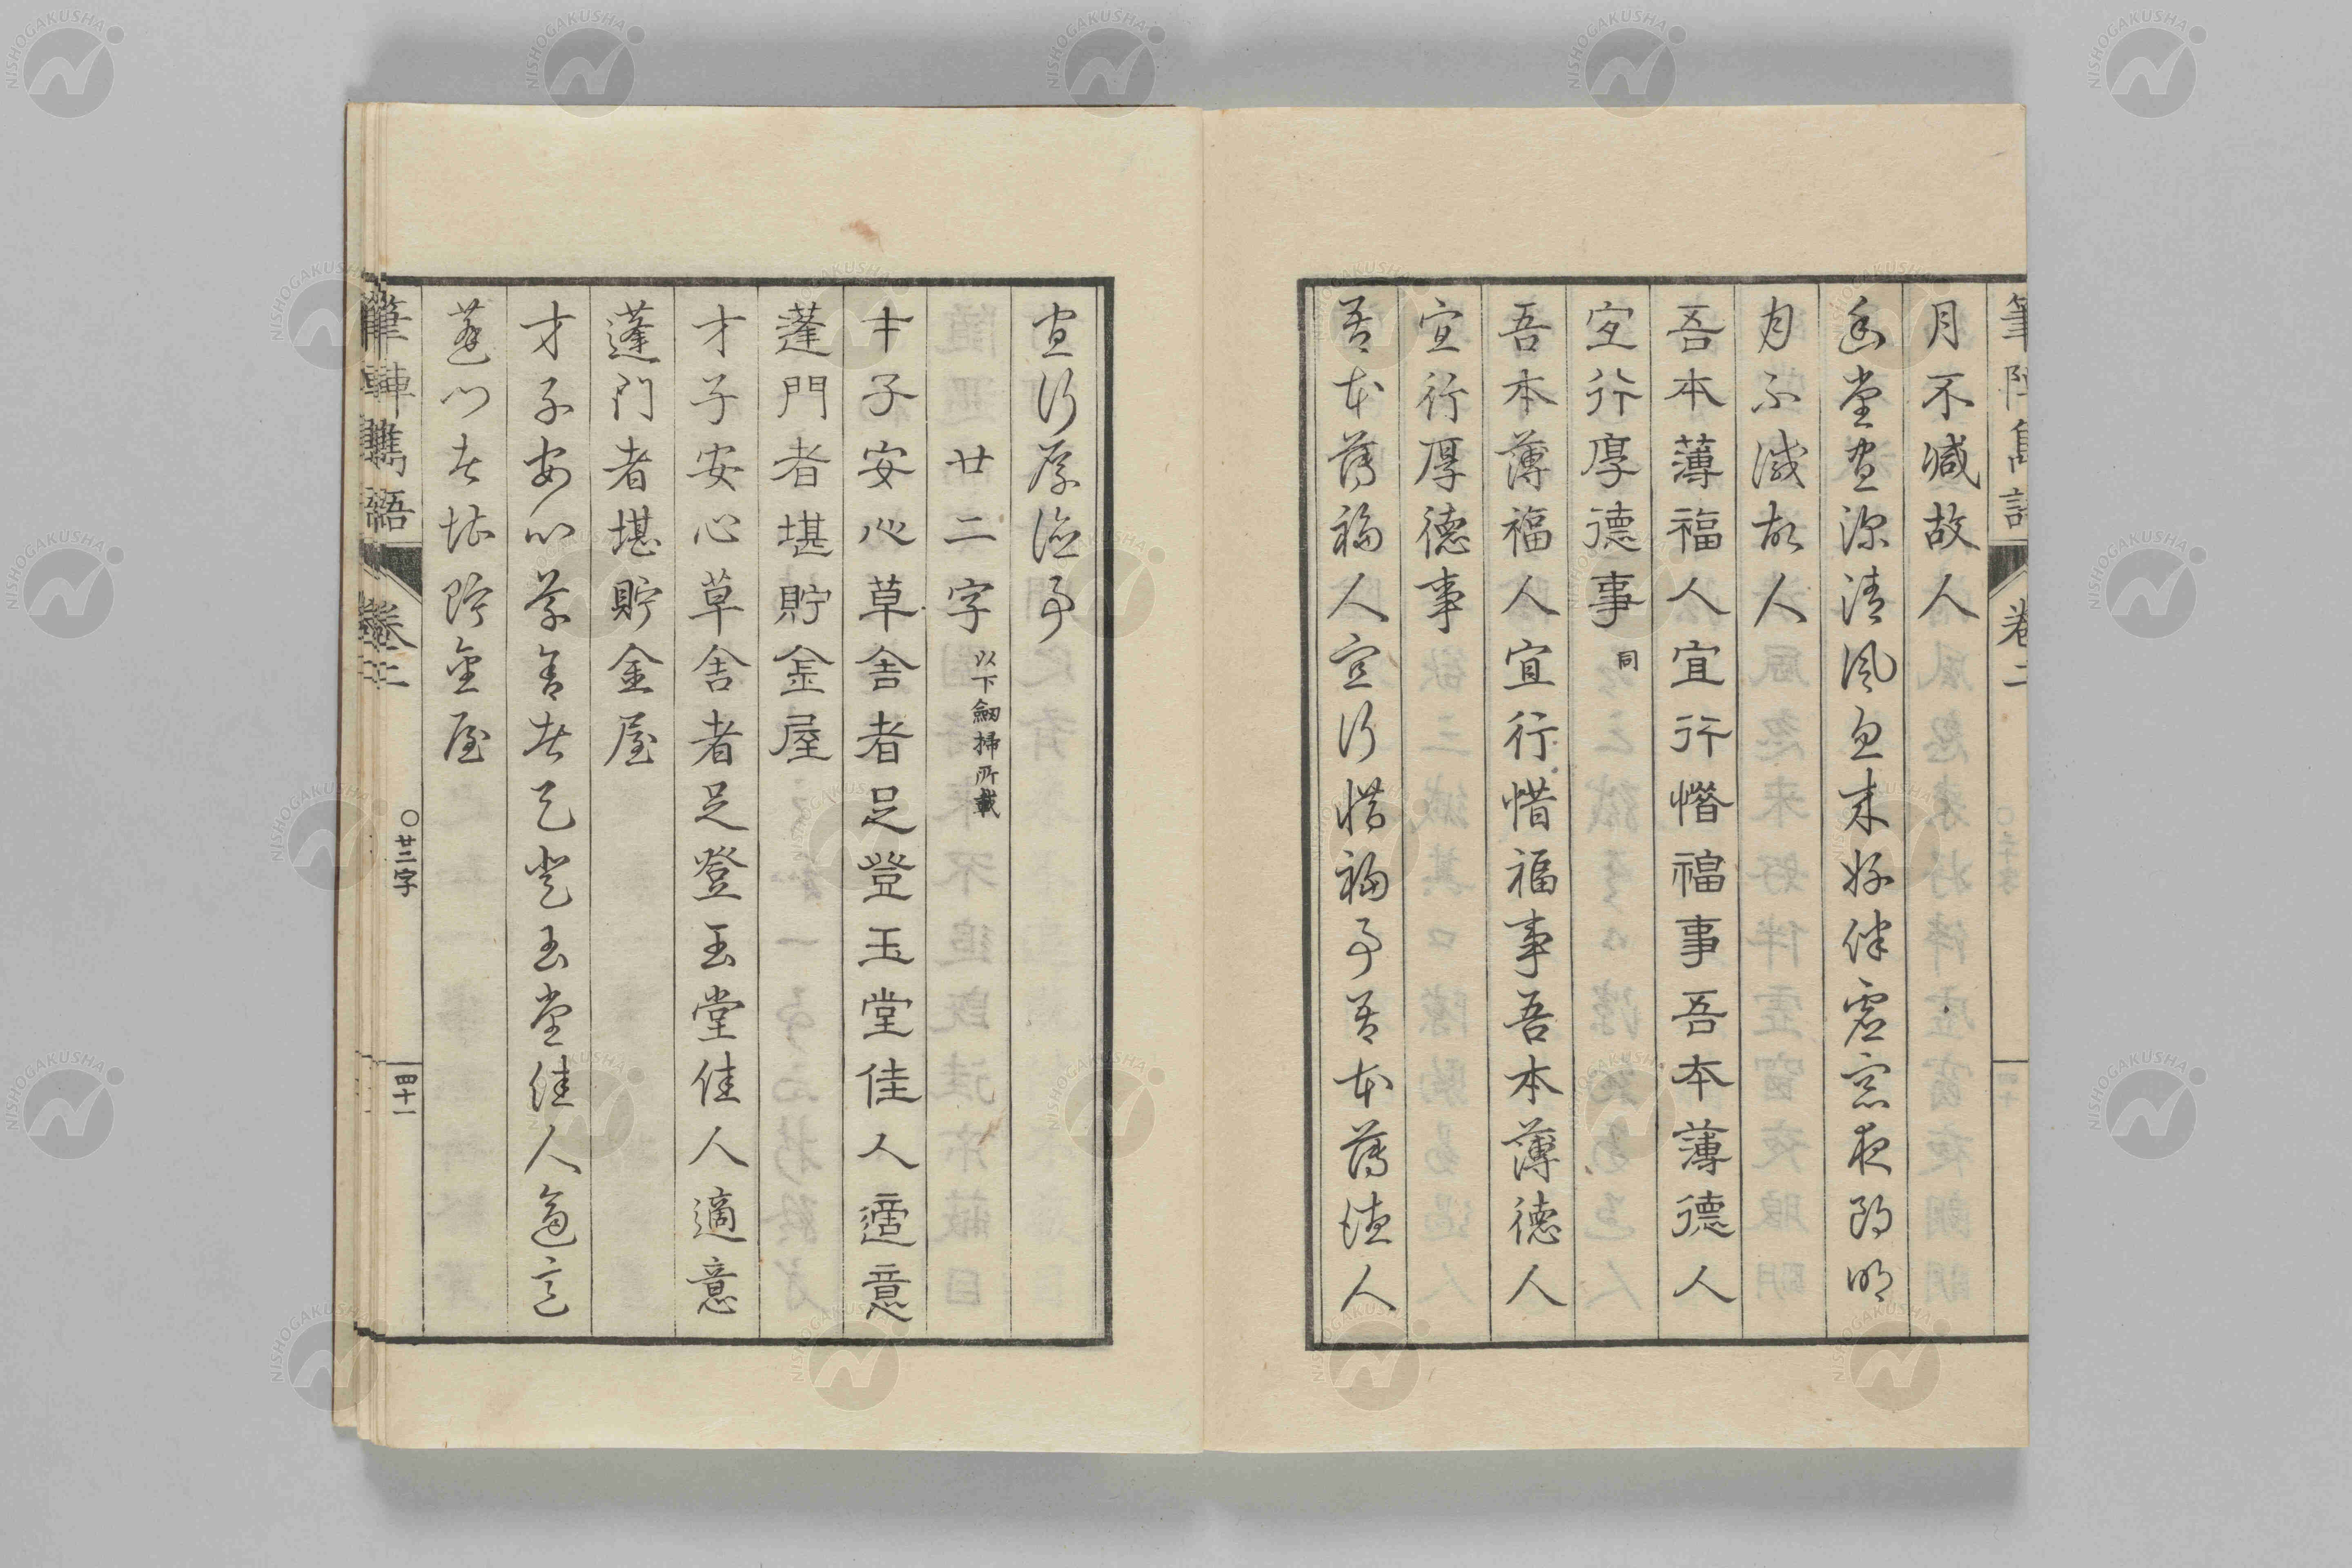 筆陣雋語 卷二
月不減故人
幽堂畫深清風忽来好伴虚窓夜朗明
月不減故人
吾本薄福人宜行惜福事吾本薄德人
宜行厚德事 同
吾本薄福人宜行惜福事吾本薄德人
宜行厚德事
吾本薄福人宜行惜福事吾本薄德人
宜行厚德事
廿二字 以下劔掃所載
才子安心草舎者足登玉堂佳人適意
蓬門者堪貯金屋
才子安心草舎者足登玉堂佳人適意
蓬門者堪貯金屋
才子安心草舎者足登玉堂佳人適意
蓬門者堪貯金屋
語 卷二 〇廿二字 四十一
NISHOGAKUSHA